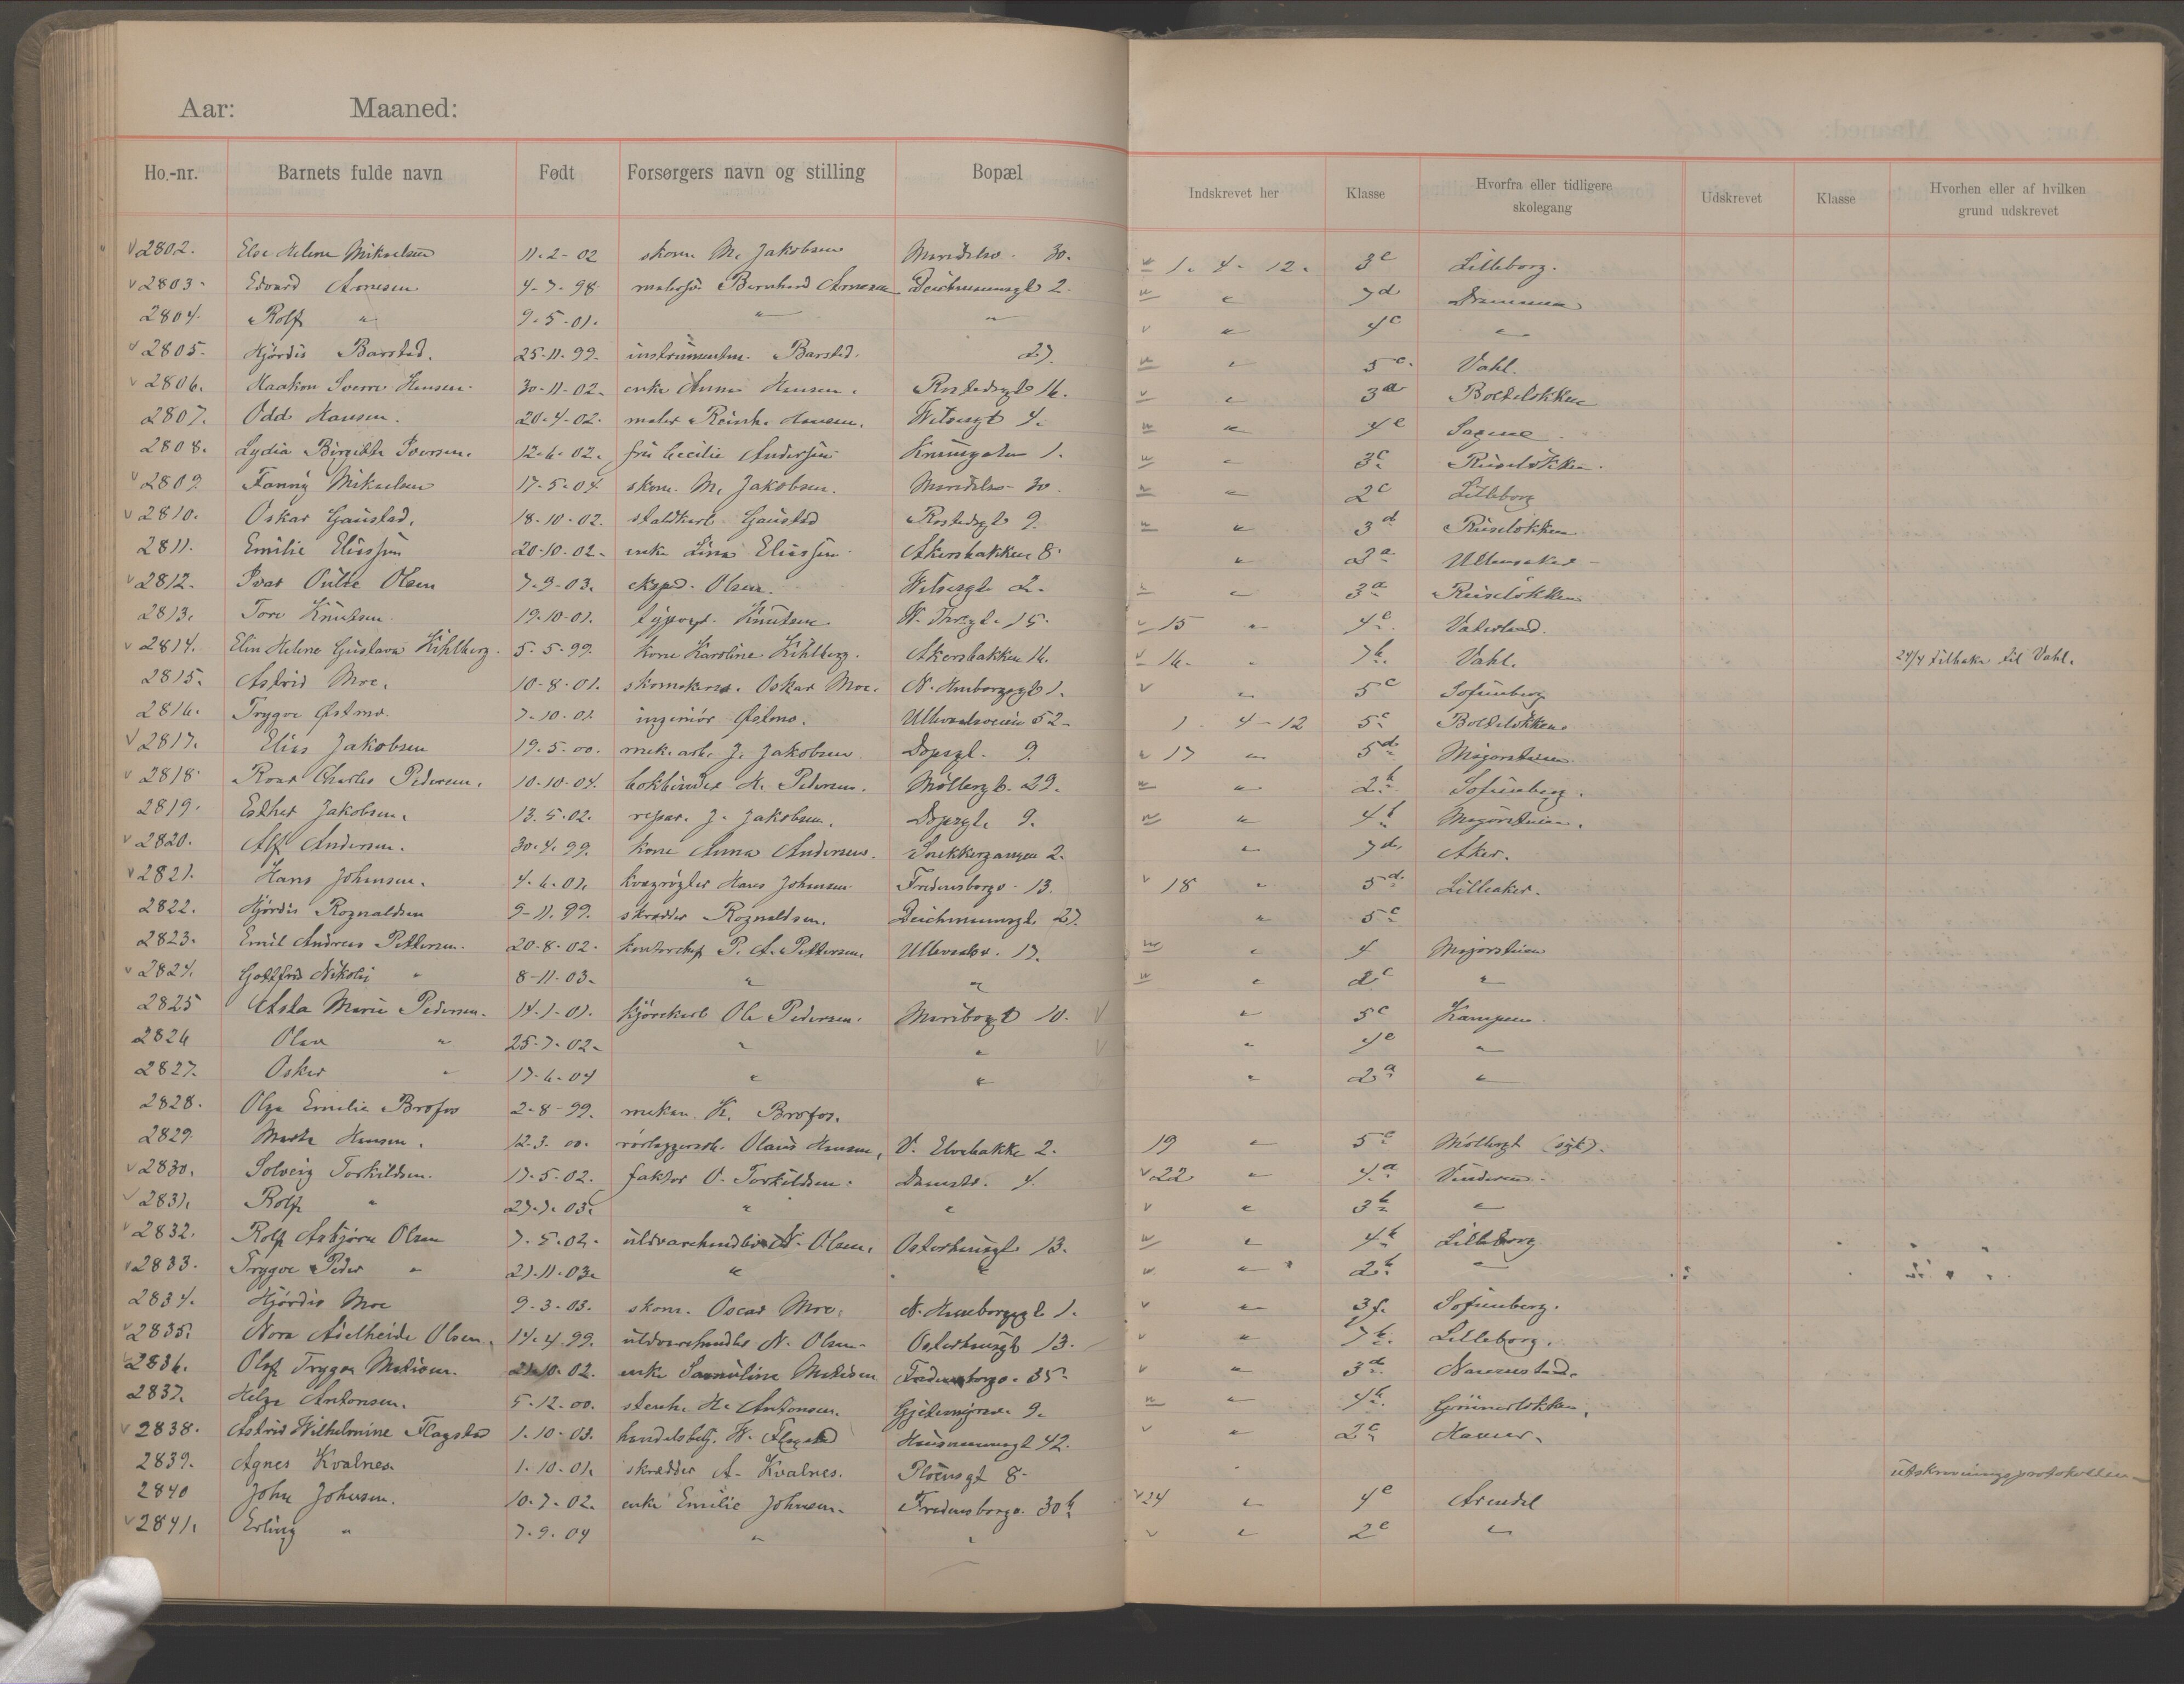 Aar: Maaned:
Ho.-nr. Barnets fulde navn Født Forsørgers navn og stilling Bopæl Indskrevet her Klasse Hvorfra eller tidligere skolegang Udskrevet Klasse Hvorhen eller af hvilken grund udskrevet
2802. Else Helene Mikaelsen 11-2-02 skom. M. Jakobsen Maridalsv. 30. 1. 4. 12. 3c Lilleborg.
2803. Edvard Arnesen 4-7-98 Bernhard Arnesen Deichmannsgt 2. " 7d Drammen
2804. Rolf " 9-5-01. " " " 4c "
2805. Hjördis Barstad. 25-11-99. instrumentm. Barstad. 27. " 5c. Vahl.
2806. Haakon Sverre Hansen. 30-11-02. enke Anna Hansen. Rostedsgt 16. " 3a Bolteløkken
2807. Odd Hansen. 20-4-02. maler Hansen. Wilsesgt 4. " 4e Sagene.
2808. Lydia Birgitte Iversen. 12-6-02. fru Cecilie Andersen 1. " 3c Ruseløkken.
2809 Fanny Mikaelsen 17-5-04. skom. M. Jakobsen. Maridalsv. 30. " 2c Lilleborg
2810. Oskar Gaustad. 18-10-02. staldkarl Gaustad Rostedsgt 9. " 3d Ruseløkken
2811. Emilie Eliassen 20-10-02. enke Lina Eliassen Akersbakken 8. " 3a Ullensaker
2812. Ivar Olsen 7-9-03. eksped. Olsen. Wilsesgt. 2. " 3a Ruseløkken
2813. Tore Knutsen 19-10-01. typogr. Knutsen 15. 15 " 4e Vaterland.
2814. Elin Helene Gustava Kihlberg. 5-5-99. kone Karoline Kihlberg. Akersbakken 16. 16. " 7b. Vahl. 24/4 tilbake til Vahl.
2815. Astrid Moe. 10-8-01. Oskar Moe. 1. " 5c Sofienberg
2816. Trygve Østmo. 7-10-01. ingeniør Østmo. Ullevaalsveien 52. 1. 4-12 5c Bolteløkken
2817. Elias Jakobsen 19-5-00. mek. arb. J. Jakobsen. Dopsgt. 9. 17 " 5d Majorstuen.
2818. Roar Charles Pedersen. 10-10-04. bokbinder H. Pedersen. Møllergt. 29. " 2b. Sofienberg.
2819. Esther Jakobsen. 13-5-02. repar. J. Jakobsen. Dopsgt. 9. " 4b Majorstuen.
2820. Alf Andersen. 30-4-99. kone Anna Andersen. Snekkergangen 2. " 7d. Aker.
2821. Hans Johansen. 4-6-01. Hans Johansen Fredensborgv. 13. 18 " 5d Lilleaker.
2822. Hjördis Rognaldsen 9-11-99. skrædder Rognaldsen. Deichmannsgt 27. " 5c
2823. Emil Andreas Pettersen. 20-8-02. kontorchef P. A. Pettersen. Ullevaalsv. 17. " 4 Majorstuen
2824. Gottfrid Nikolai " 8-11-03. " " " 2c "
2825 Asta Marie Pedersen. 14-1-01. kjørekarl Ole Pedersen. Maribogt 10. " 5c Kampen.
2826 Olav " 25-7-02. " " " 4e "
2827. Oskar " 17-6-04 " " " 2a "
2828. Olga Emilie Brofos 2-8-99. mekan. K. Brofos.
2829. Marta Hansen. 12-3-00. Olaus Hansen. V. Elvebakke 2. 19 " 5c Møllergt (syk).
2830. Solveig Torkildsen. 17-5-02. faktor O. Torkildsen. Damstr. 4. 22 " 4a Vinderen.
2831. Rolf " 27-7-03. " " " 3b "
2832. Rolf Asbjørn Olsen 7-5-02. uldvarehandler N. Olsen. Osterhausgt 13. " 4b Lilleborg
2833. Trygve Peder " 21-11-03. " " " 2b. "
2834. Hjördis Moe 9-3-03. skom. Oscar Moe. 1. " 3f. Sofienberg.
2835. Nora Adelheide Olsen. 14-4-99. uldvarehandler N. Olsen. Osterhausgt 13. " 7b. Lilleborg.
2836. Olaf Trygve 21-10-02. enke Fredensborgv. 35. " 3d.
2837. Helga Antonsen. 5-12-00. H. Antonsen. 9. " 4b. Grünnerløkken.
2838. Astrid Wilhelmine Flagstad 1-10-03. handelsbetj. W. Flagstad Hausmannsgt 42. " 2c Hamar.
2839. Agnes Kvalnes. 1-10-01. skrædder A. Kvalnes. Pløensgt 8. utskrivningsprotokollen
2840 John Johnsen. 10-7-02. enke Emilie Johnsen. Fredensborgv. 30b 24 " 4e Arendal
2841. Erling " 7-9-04 " " " 2e "